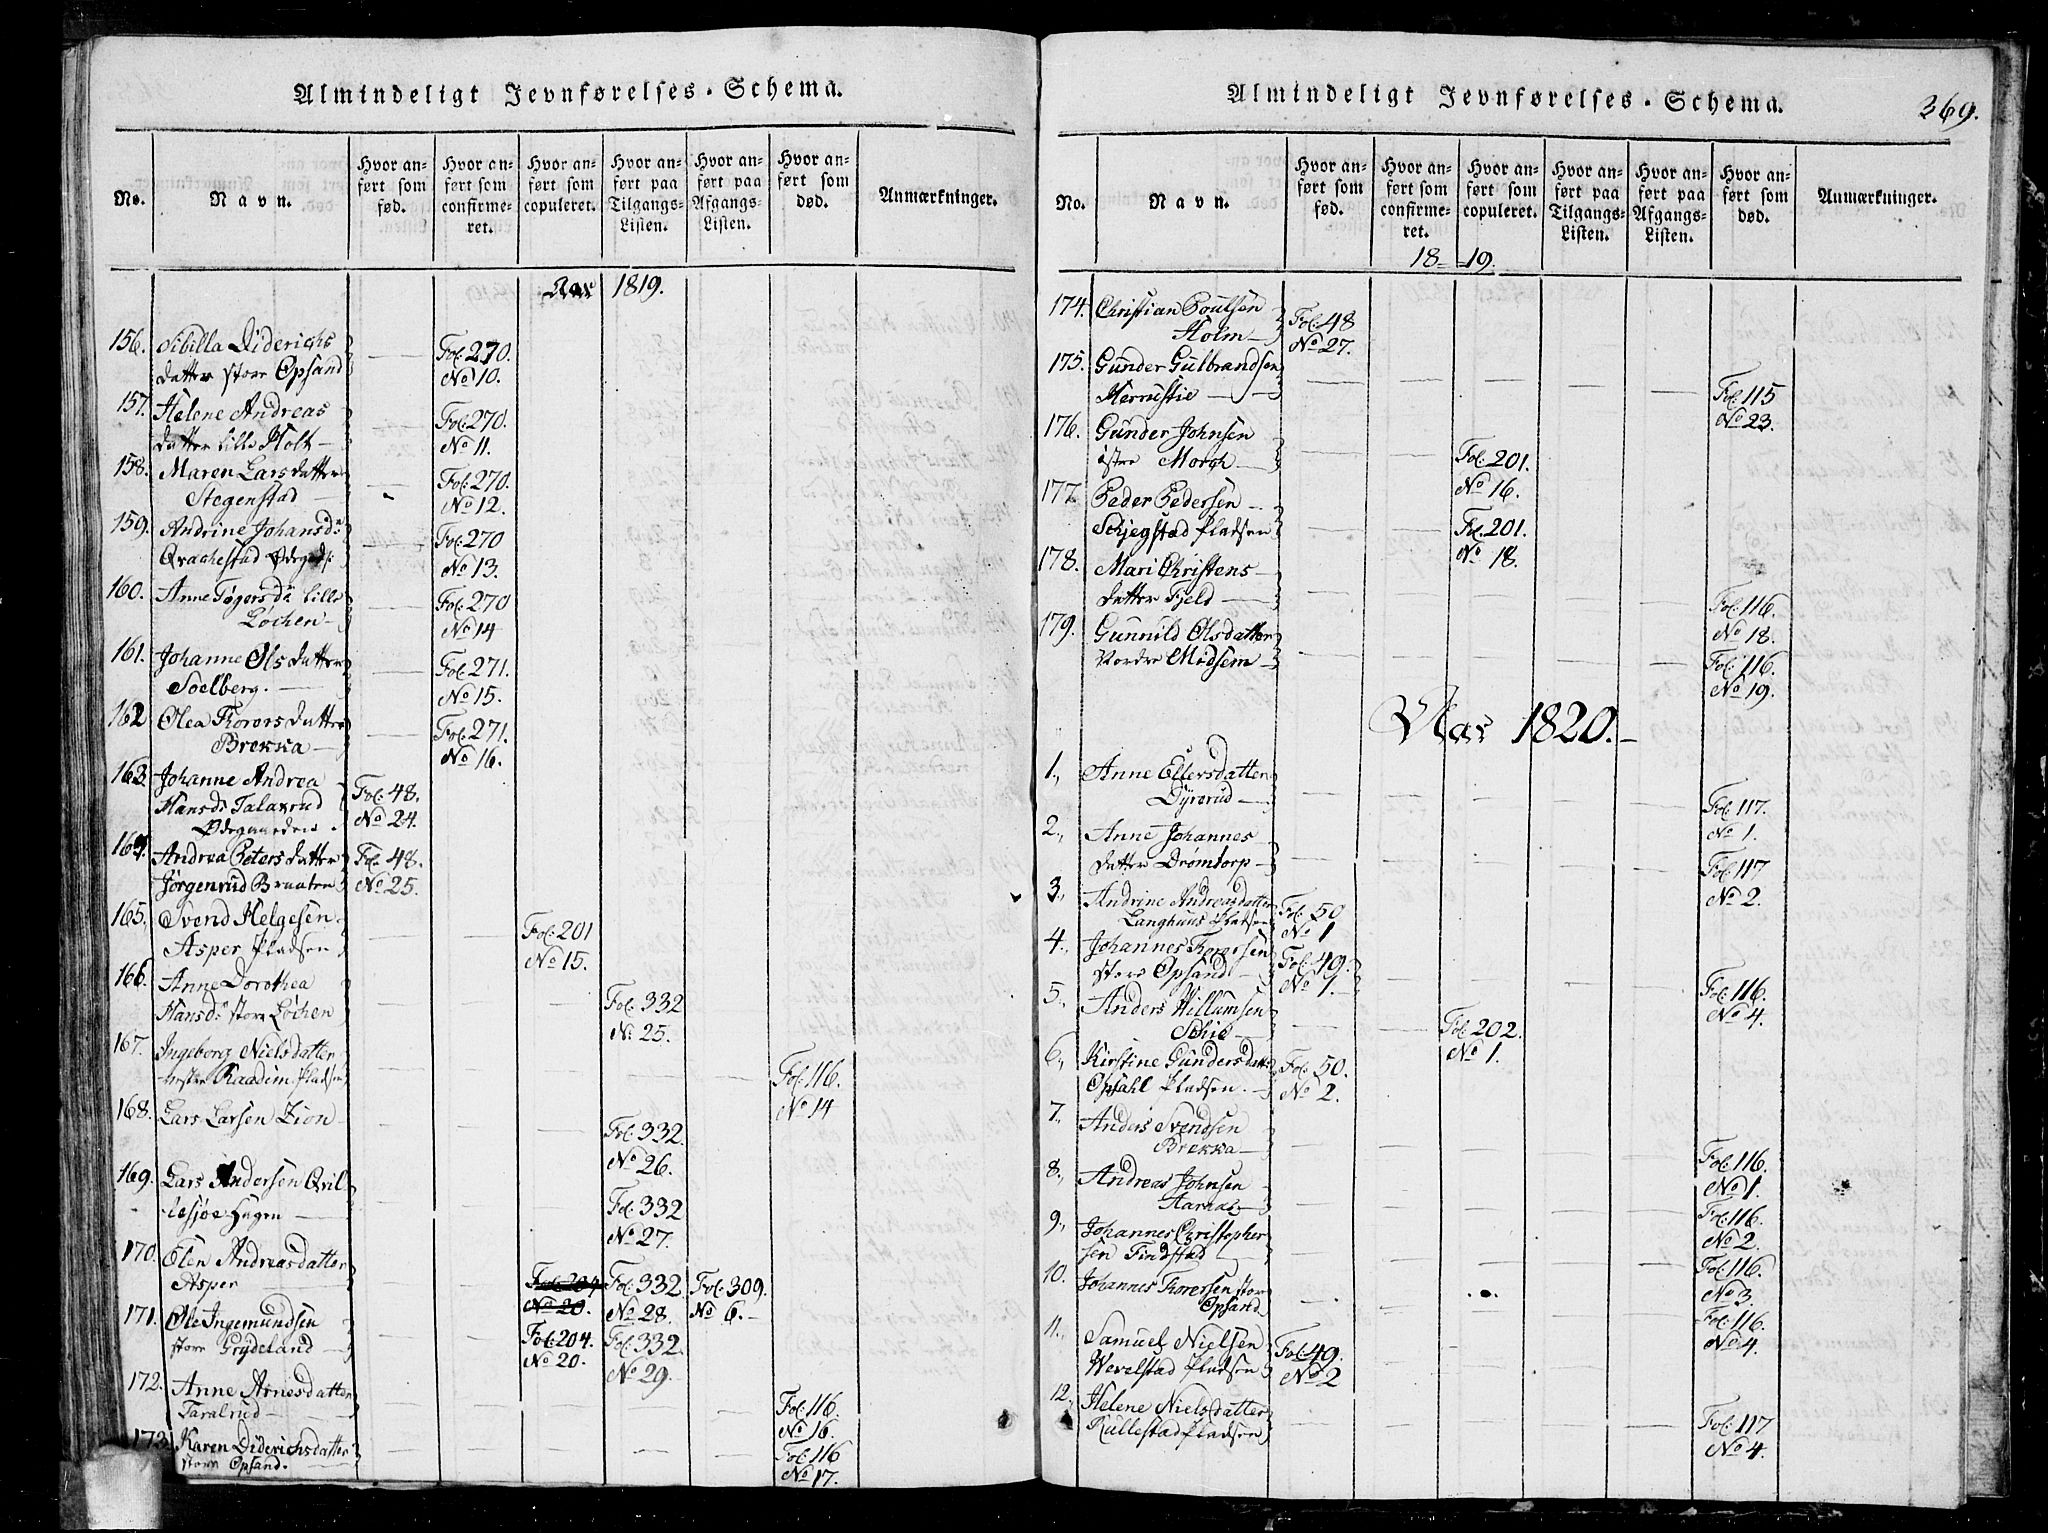 Almindeligt Jevnførelses-Schema.
No.
Navn.
Hvor an-
ført som
fød.
Hvor an-
ført som
confirme-
ret.
Hvor an-
ført som
copuleret.
Hvor an-
ført paa
Tilgangs-
Listen.
Hvor an-
ført paa
Afgangs-
Listen.
Hvor an-
ført som
død.
Anmærkninger.
Aar 1819.
156. Sibilla Diderichs
datter store Opsand
Fol: 270.
No 10.
157. Helene Andreas
datter lille Holt
Fol: 270.
No 11.
158. Maren Larsdatter
Stegenstad
Fol: 270.
No 12.
159. Andrine Johansd:
Qvachestad Ødegds:
Fol: 270
No 13.
160. Anne Tøgersd: lille
Løchen
Fol: 270
No 14
161. Johanne Olsdatter
Soelberg.
Fol: 271.
No 15.
162 Olea Thorersdatter
Brekka
Fol: 271.
No 16.
163. Johanne Andrea
Hansd: Talaxrud
Ødegaarden
Fol: 48.
No 24.
164. Andrea Petersdatter
Jørgenrud Braaten
Fol: 48.
No 25.
165. Svend Helgesen
Asper Pladsen
Fol: 201
No 15.
166. Anne Dorothea
Hansd: store Løchen
Fol: 332
No 25.
167. Ingeborg Nielsdatter
vestre Raadim Pladsen
Fol: 116.
No 14
168. Lars Larsen Zion
Fol: 332.
No 26.
169. Lars Andersen Qvil
lesjøe Hagen
Fol: 332
No 27.
170. Olen Andreasdatter
Asper
Fol: 204
No 20.
Fol: 332.
No 28.
Fol: 309.
No 6.
171. Ole Ingemundsen
store Grydeland
Fol: 204.
No 20.
Fol: 332.
No 29.
172. Anne Arnesdatter
Taralrud
Fol: 116.
No 16.
173. Karen Diderichsdatter
store Opsand.
Fol: 116
No 17.
Almindeligt Jevnførelses-Schema.
369.
No.
Navn.
Hvor an-
ført som
fød.
Hvor an-
ført som
confirme-
ret.
Hvor an-
ført som
copuleret.
Hvor an-
ført paa
Tilgangs-
Listen.
Hvor an-
ført paa
Afgangs-
Listen.
Hvor an-
ført som
død.
Anmærkninger.
18-19.
174. Christian Poulsen
Holm
Fol: 48
No 27.
175. Gunder Gulbrandsen
Herrustie
Fol: 115
No 23.
176. Gunder Johnsen
østre Morgh
Fol: 201.
No 16.
177. Peder Pedersen
Schjegstad Pladsen
Fol: 201.
No 18.
178. Mari Christens
datter Fjeld
Fol: 116.
No 18.
179. Gunnild Olsdatter
Nordre Midsem
Fol: 116.
No 19.
Aar 1820.
1. Anne Ellersdatter
Dyrerud
Fol: 117.
No 1.
2. Anne Johannes
datter Drømtorp
Fol: 117
No 2.
3. Andrine Andreasdatter
Langhuus Pladsen
Fol: 50
No 1
4. Johannes Thorersen
store Opsand
Fol: 49.
No 1.
Fol: 116.
No 4.
5. Anders Willumsen
Schie
Fol: 202.
No 1.
6. Kirstine Gundersdatter
Opsahl Pladsen.
Fol: 50.
No 2.
7. Anders Svendsen
Brekka
Fol: 116.
No 1.
8. Andreas Johnsen
Aarnæs
Fol: 116.
No 2.
9. Johannes Christopher
sen Findstad
Fol: 116.
No 3.
10. Johannes Thorersen stor
Opsand
Fol: 116.
No 4.
11. Samuel Nielsen
Wevelstad Pladsen
Fol: 49.
No 2
12. Helene Nielsdatter
Kullestad Pladsen
Fol: 117
No 4.